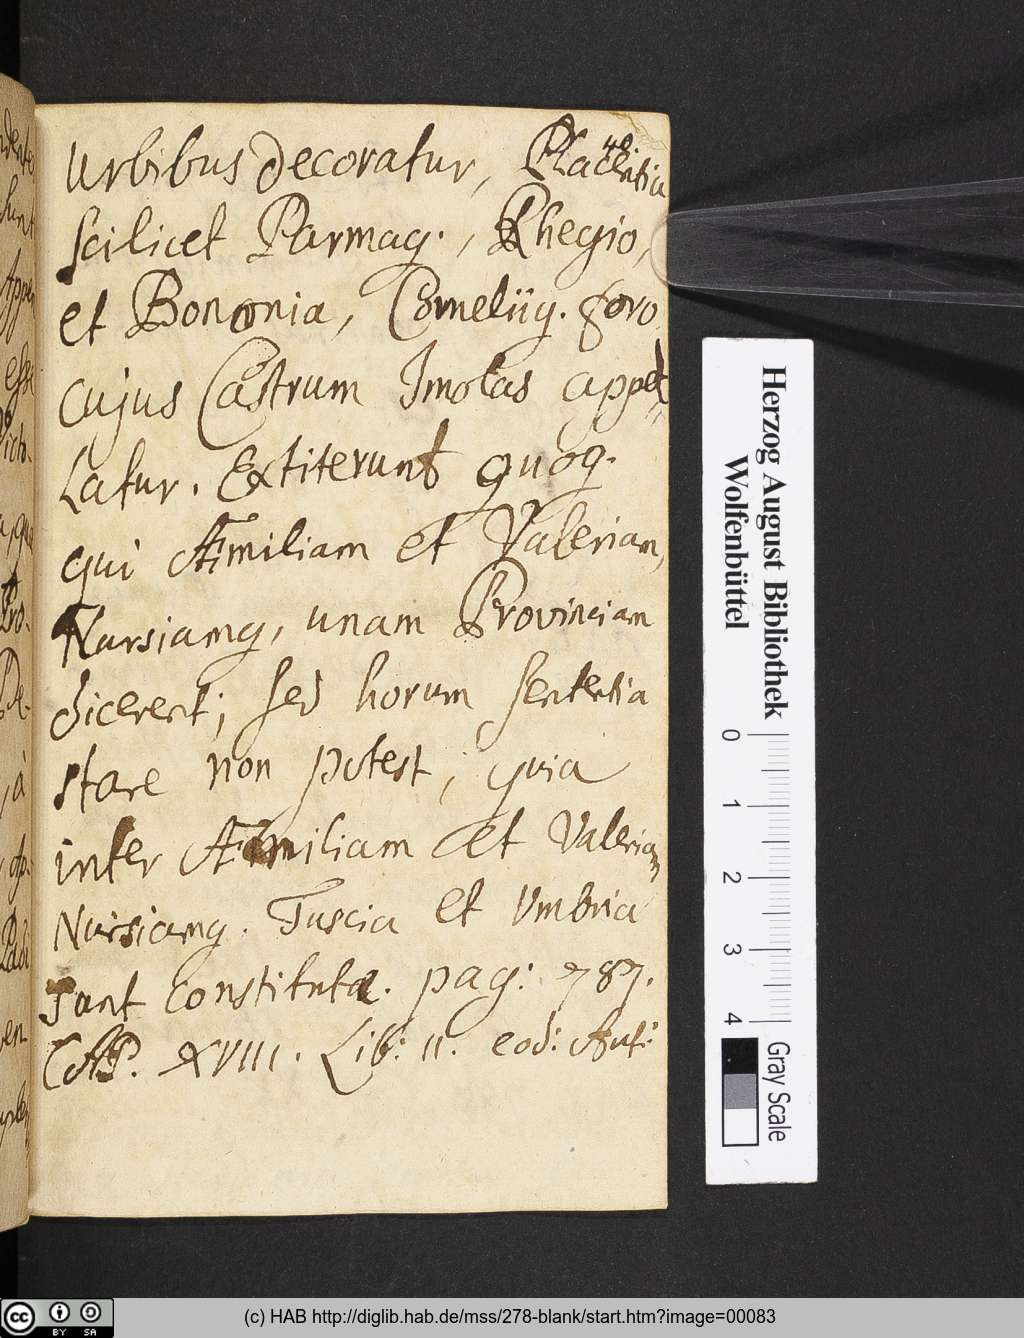 40.
Urbibus decoratur, Placentia
scilicet Parmaq., Rhegio,
et Bononia, Corneliiq. foro
cujus Castrum Imolas appel
latur. Extiterunt quoq.
qui Æmiliam et Valeriam,
Nursiamq, unam Provinciam
dicerent; sed horum sententia
stare non potest; quia
inter Æmiliam et Valeriam
Nursiamq. Tuscia et Umbria
sunt constituta. pag: 787.
CAP. XVIII. Lib: II. eod: Aut:
Herzog August Bibliothek
Wolfenbüttel
0 1 2 3 4
Gray Scale
cc BY SA
(c) HAB http://diglib.hab.de/mss/278-blank/start.htm?image=00083